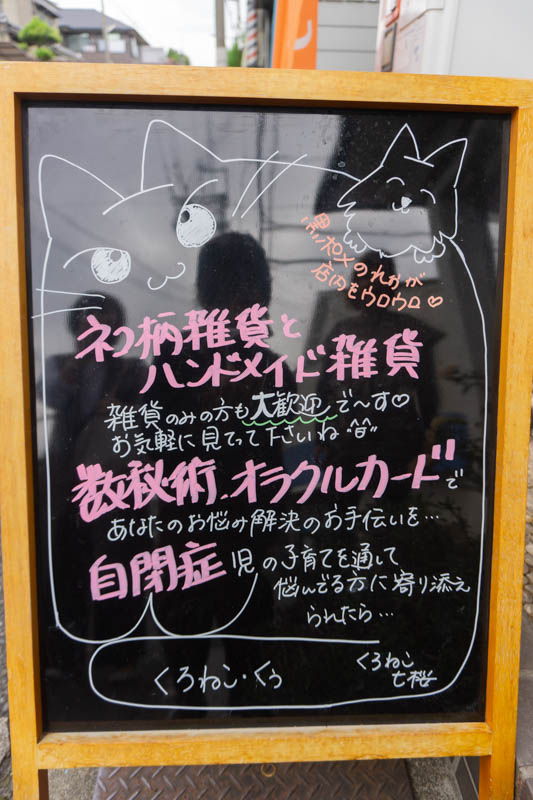 黒ポメのれおが
店内をウロウロ♡
ネコ柄雑貨と
ハンドメイド雑貨
雑貨のみの方も大歓迎で〜す♡
お気軽に見てって下さいね
数秘術、オラクルカードで
あなたのお悩み解決のお手伝いを…
自閉症児の子育てを通して
悩んでる方に寄り添え
られたら…
くろねこ・くぅ
くろねこ
七桜